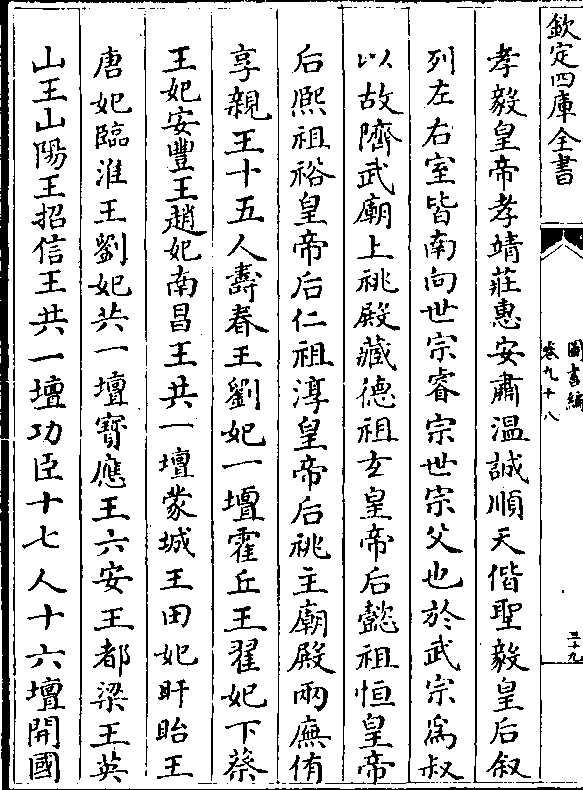 欽定四庫全書
圖書編
卷九十八
三十九
孝毅皇帝孝靖莊惠安肅溫誠順天偕聖毅皇后叙
列左右室皆南向世宗睿宗世宗父也於武宗為叔
以故隮武廟上祧殿藏德祖玄皇帝后懿祖恒皇帝
后熈祖裕皇帝后仁祖淳皇帝后祧主廟殿兩廡侑
享親王十五人壽春王劉妃一壇霍丘王翟妃下蔡
王妃安豐王趙妃南昌王共一壇蒙城王田妃盱眙王
唐妃臨淮王劉妃共一壇寶應王六安王都梁王英
山王山陽王招信王共一壇功臣十七人十六壇開國